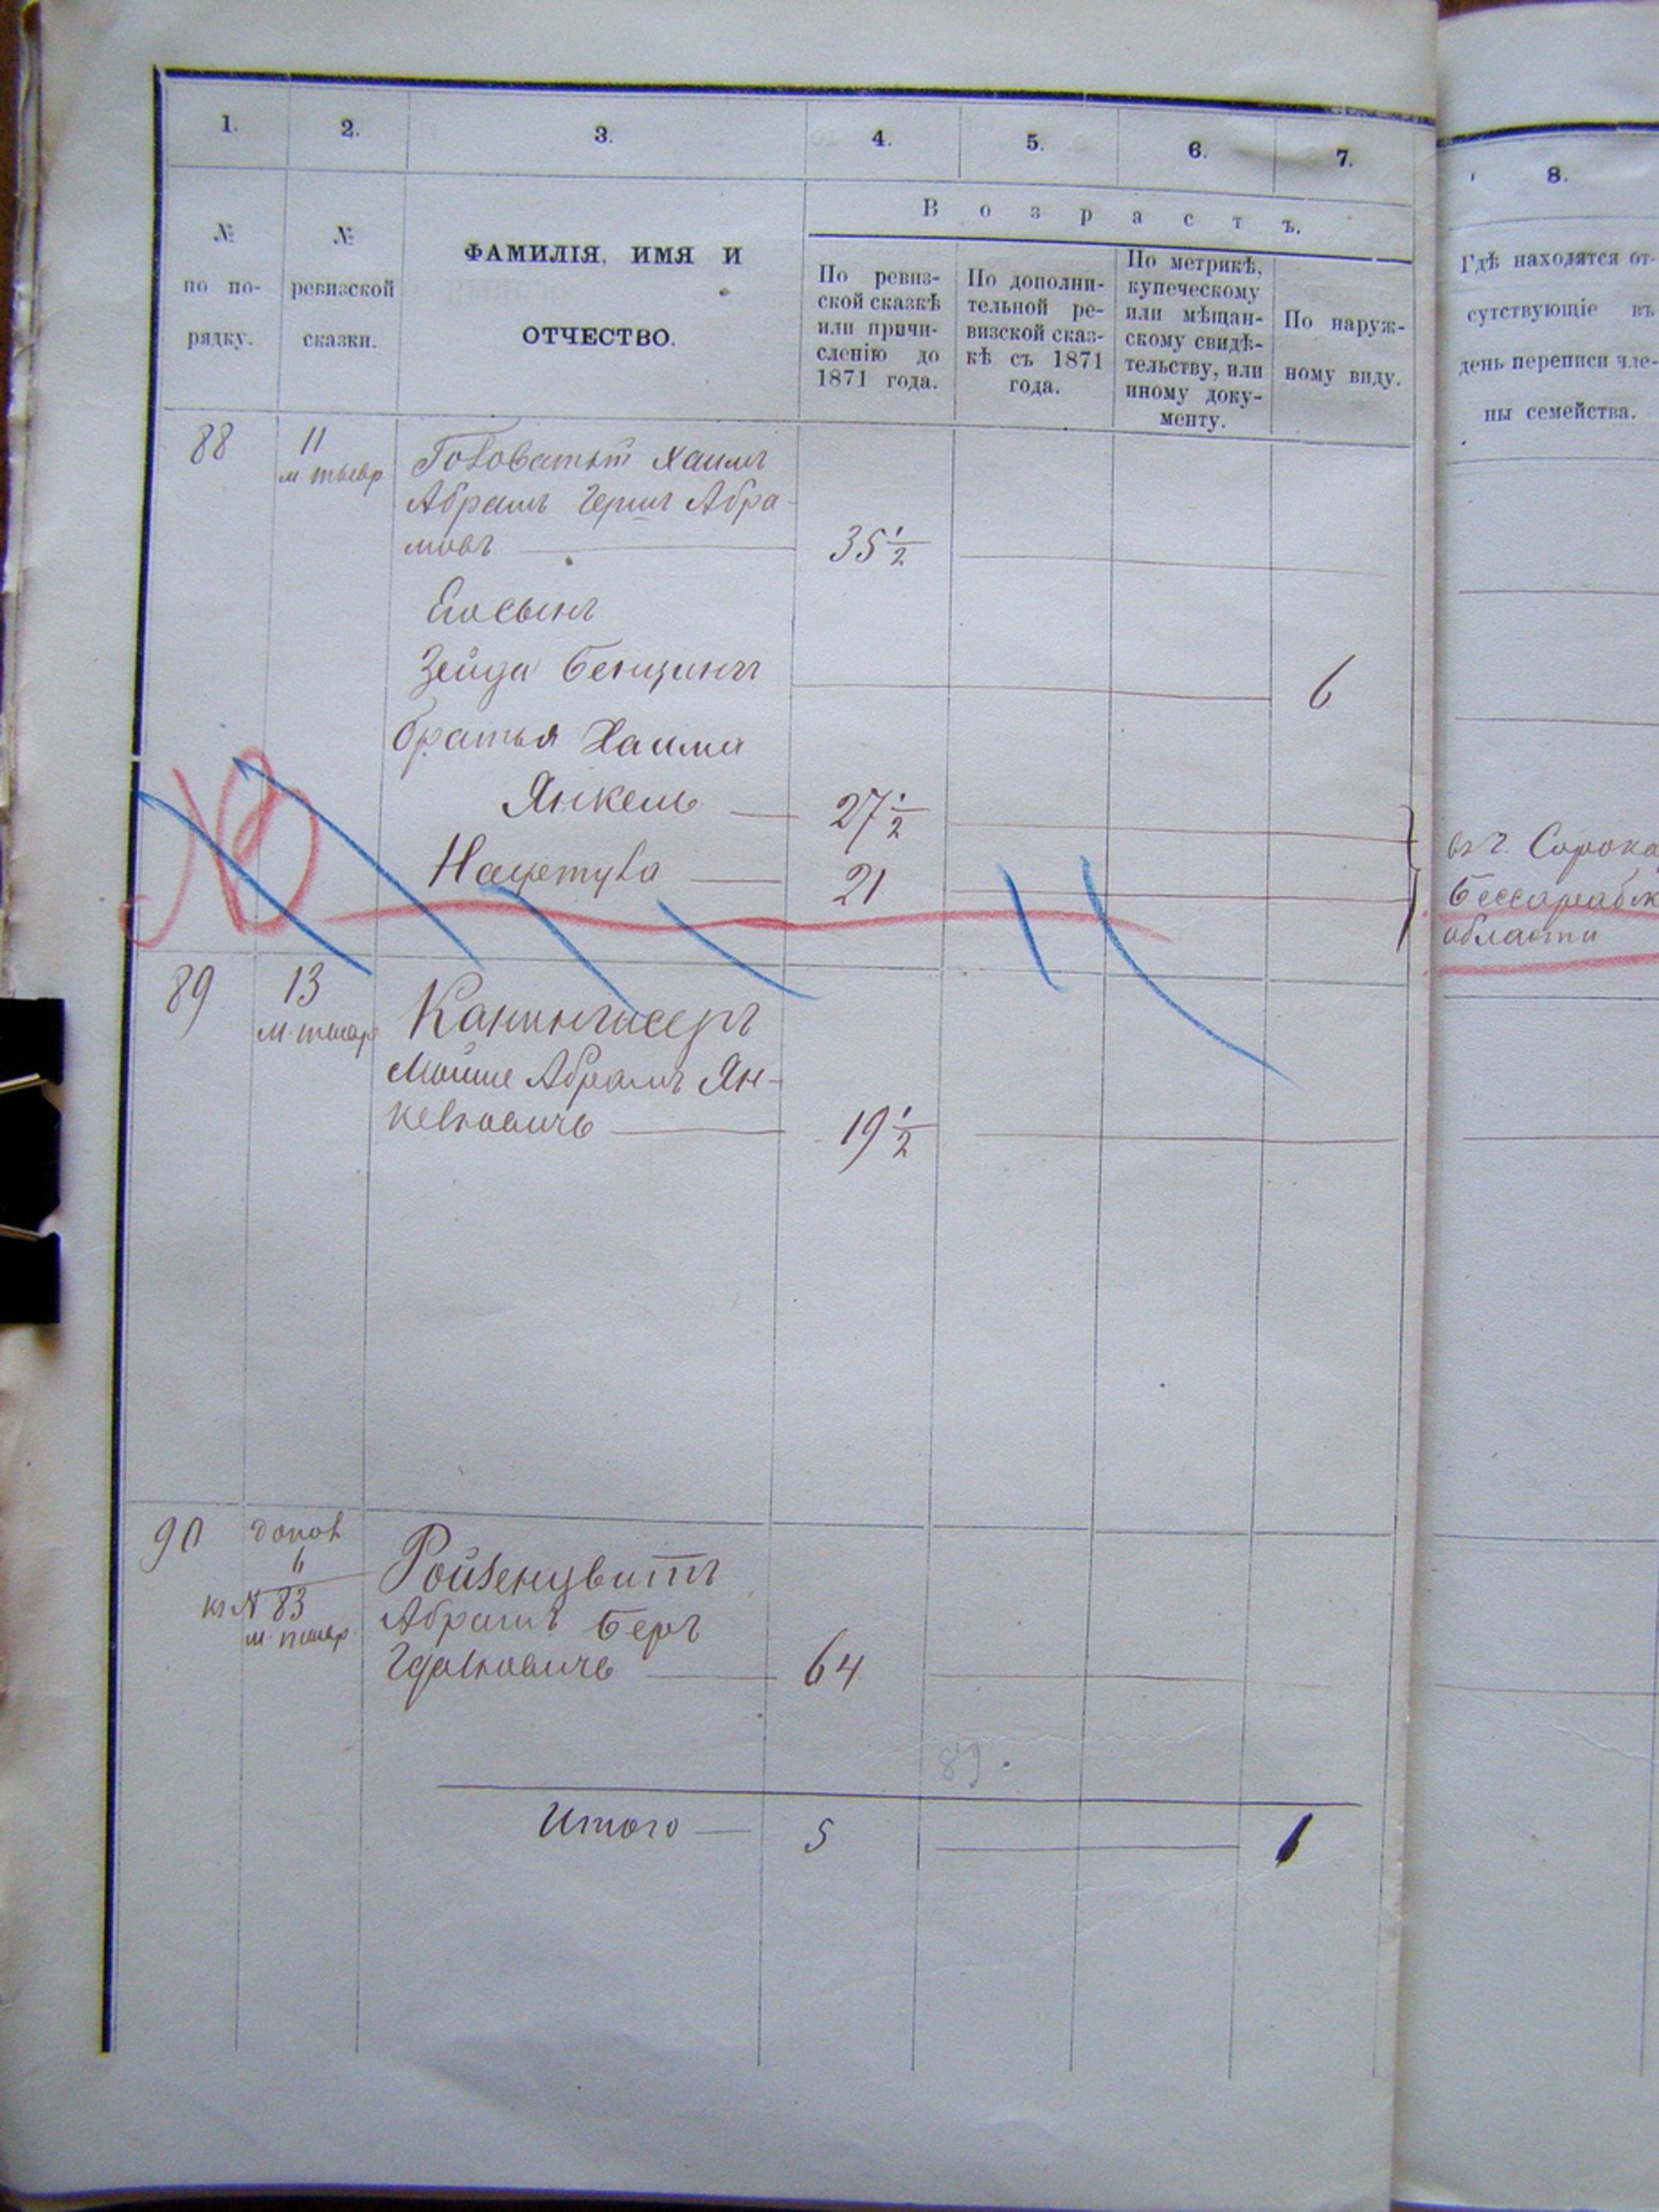 1. 2. 3. 4. 5. 6. 7. 8.
В о з р а с т ъ.
№ по по-рядку.
№ ревизской сказки.
ФАМИЛІЯ, ИМЯ И
ОТЧЕСТВО.
По ревиз-
ской сказкѣ
или причи-
сленію до
1871 года.
По дополни-
тельной ре-
визской сказ-
кѣ съ 1871
года.
По метрикѣ,
купеческому
или мѣщан-
скому свидѣ-
тельству, или
иному доку-
менту.
По наруж-
ному виду.
Гдѣ находятся от-
сутствующіе въ
день переписи чле-
ны семейства.
88 11 Головатый Хаимъ
Абрамъ Герш Абра-
мовъ 35 1/2
Его сынъ
Зейда Бенционъ 6
братья Хаима
Янкель 27 1/2
21
въ г. Сорока
Бессарабск
области
89 13
Мойше Абрамъ Ян-
келковичъ 19 1/2
90 допол
6
къ № 83
Ройзенцвитъ
Абрамъ Беръ
Гдалковичъ 64
89
Итого 5 1